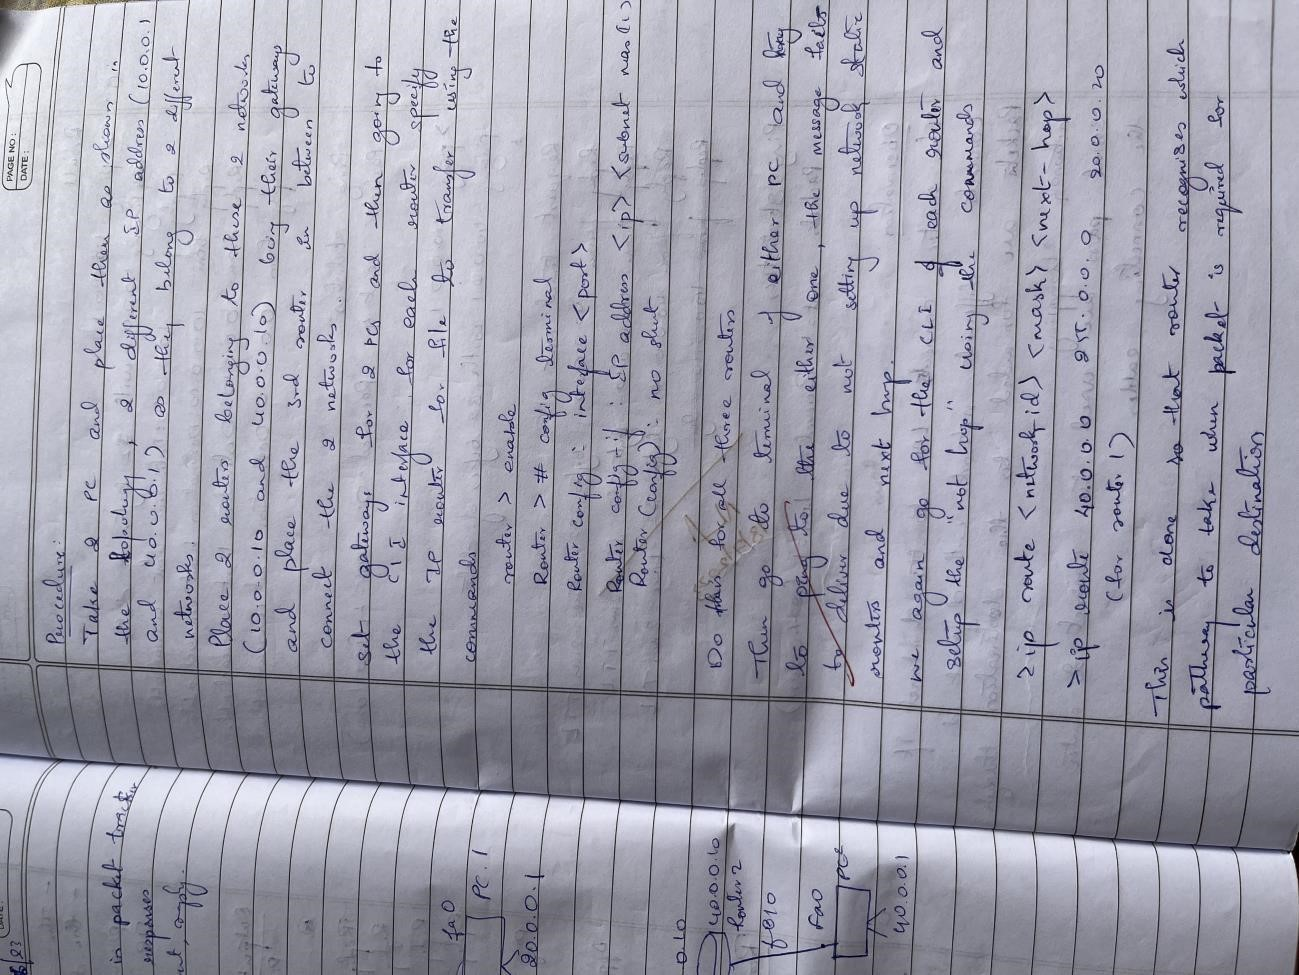 PAGE NO:
DATE:
Procedure:
Take 2 PC and place them as shown in
the topology, 2 different IP address (10.0.0.1
and 40.0.0.1) as they belong to 2 different
networks.
Place 2 routers belonging to these 2 networks
(10.0.0.10 and 40.0.0.10) being their gateway
and place the 3rd router in between to
connect the 2 networks.
Set gateways for 2 PCs and then going to
the CLI interface for each router specify
the IP router for file to transfer using the
commands
router > enable
Router > # config terminal
Router config : interface <port>
Router config-if : IP address <ip> <subnet mask>
Router (config) : no shut
Do this for all three routers
Then go to terminal of either PC and try
to ping to the either one, the message fails
to deliver due to not setting up network static
routes and next hop.
we again go for the CLI of each router and
setup the "nxt hop" using the commands
> ip route <network id> <mask> <next-hop>
> ip route 40.0.0.0 255.0.0.0 20.0.0.20
(for router 1)
This is done so that router recognises which
pathway to take when packet is required for
particular destination
in packet tracker
responses
reply.
fa0
PC.1
20.0.0.1
0.10
40.0.0.10
Router 2
fa0
40.0.0.1